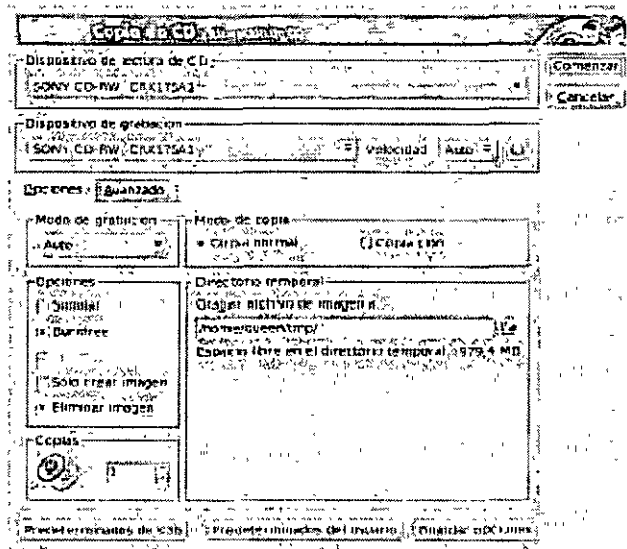 Copia de CD
Comenzar
Cancelar
Dispositivo de lectura de CD
SONY CD-RW CRX175A1
Dispositivo de grabación
SONY CD-RW CRX175A1 Velocidad Auto
Opciones Avanzado
Modo de grabación
Auto
Modo de copia
Copia normal
Copia clon
Opciones
Simular
Burnfree
Sólo crear imagen
Eliminar imagen
Directorio temporal
Grabar archivo de imagen a
/home/queen/tmp/
Espacio libre en el directorio temporal 979,4 MB
Copias
1
Predeterminados de K3b
Predeterminados del usuario
Guardar opciones